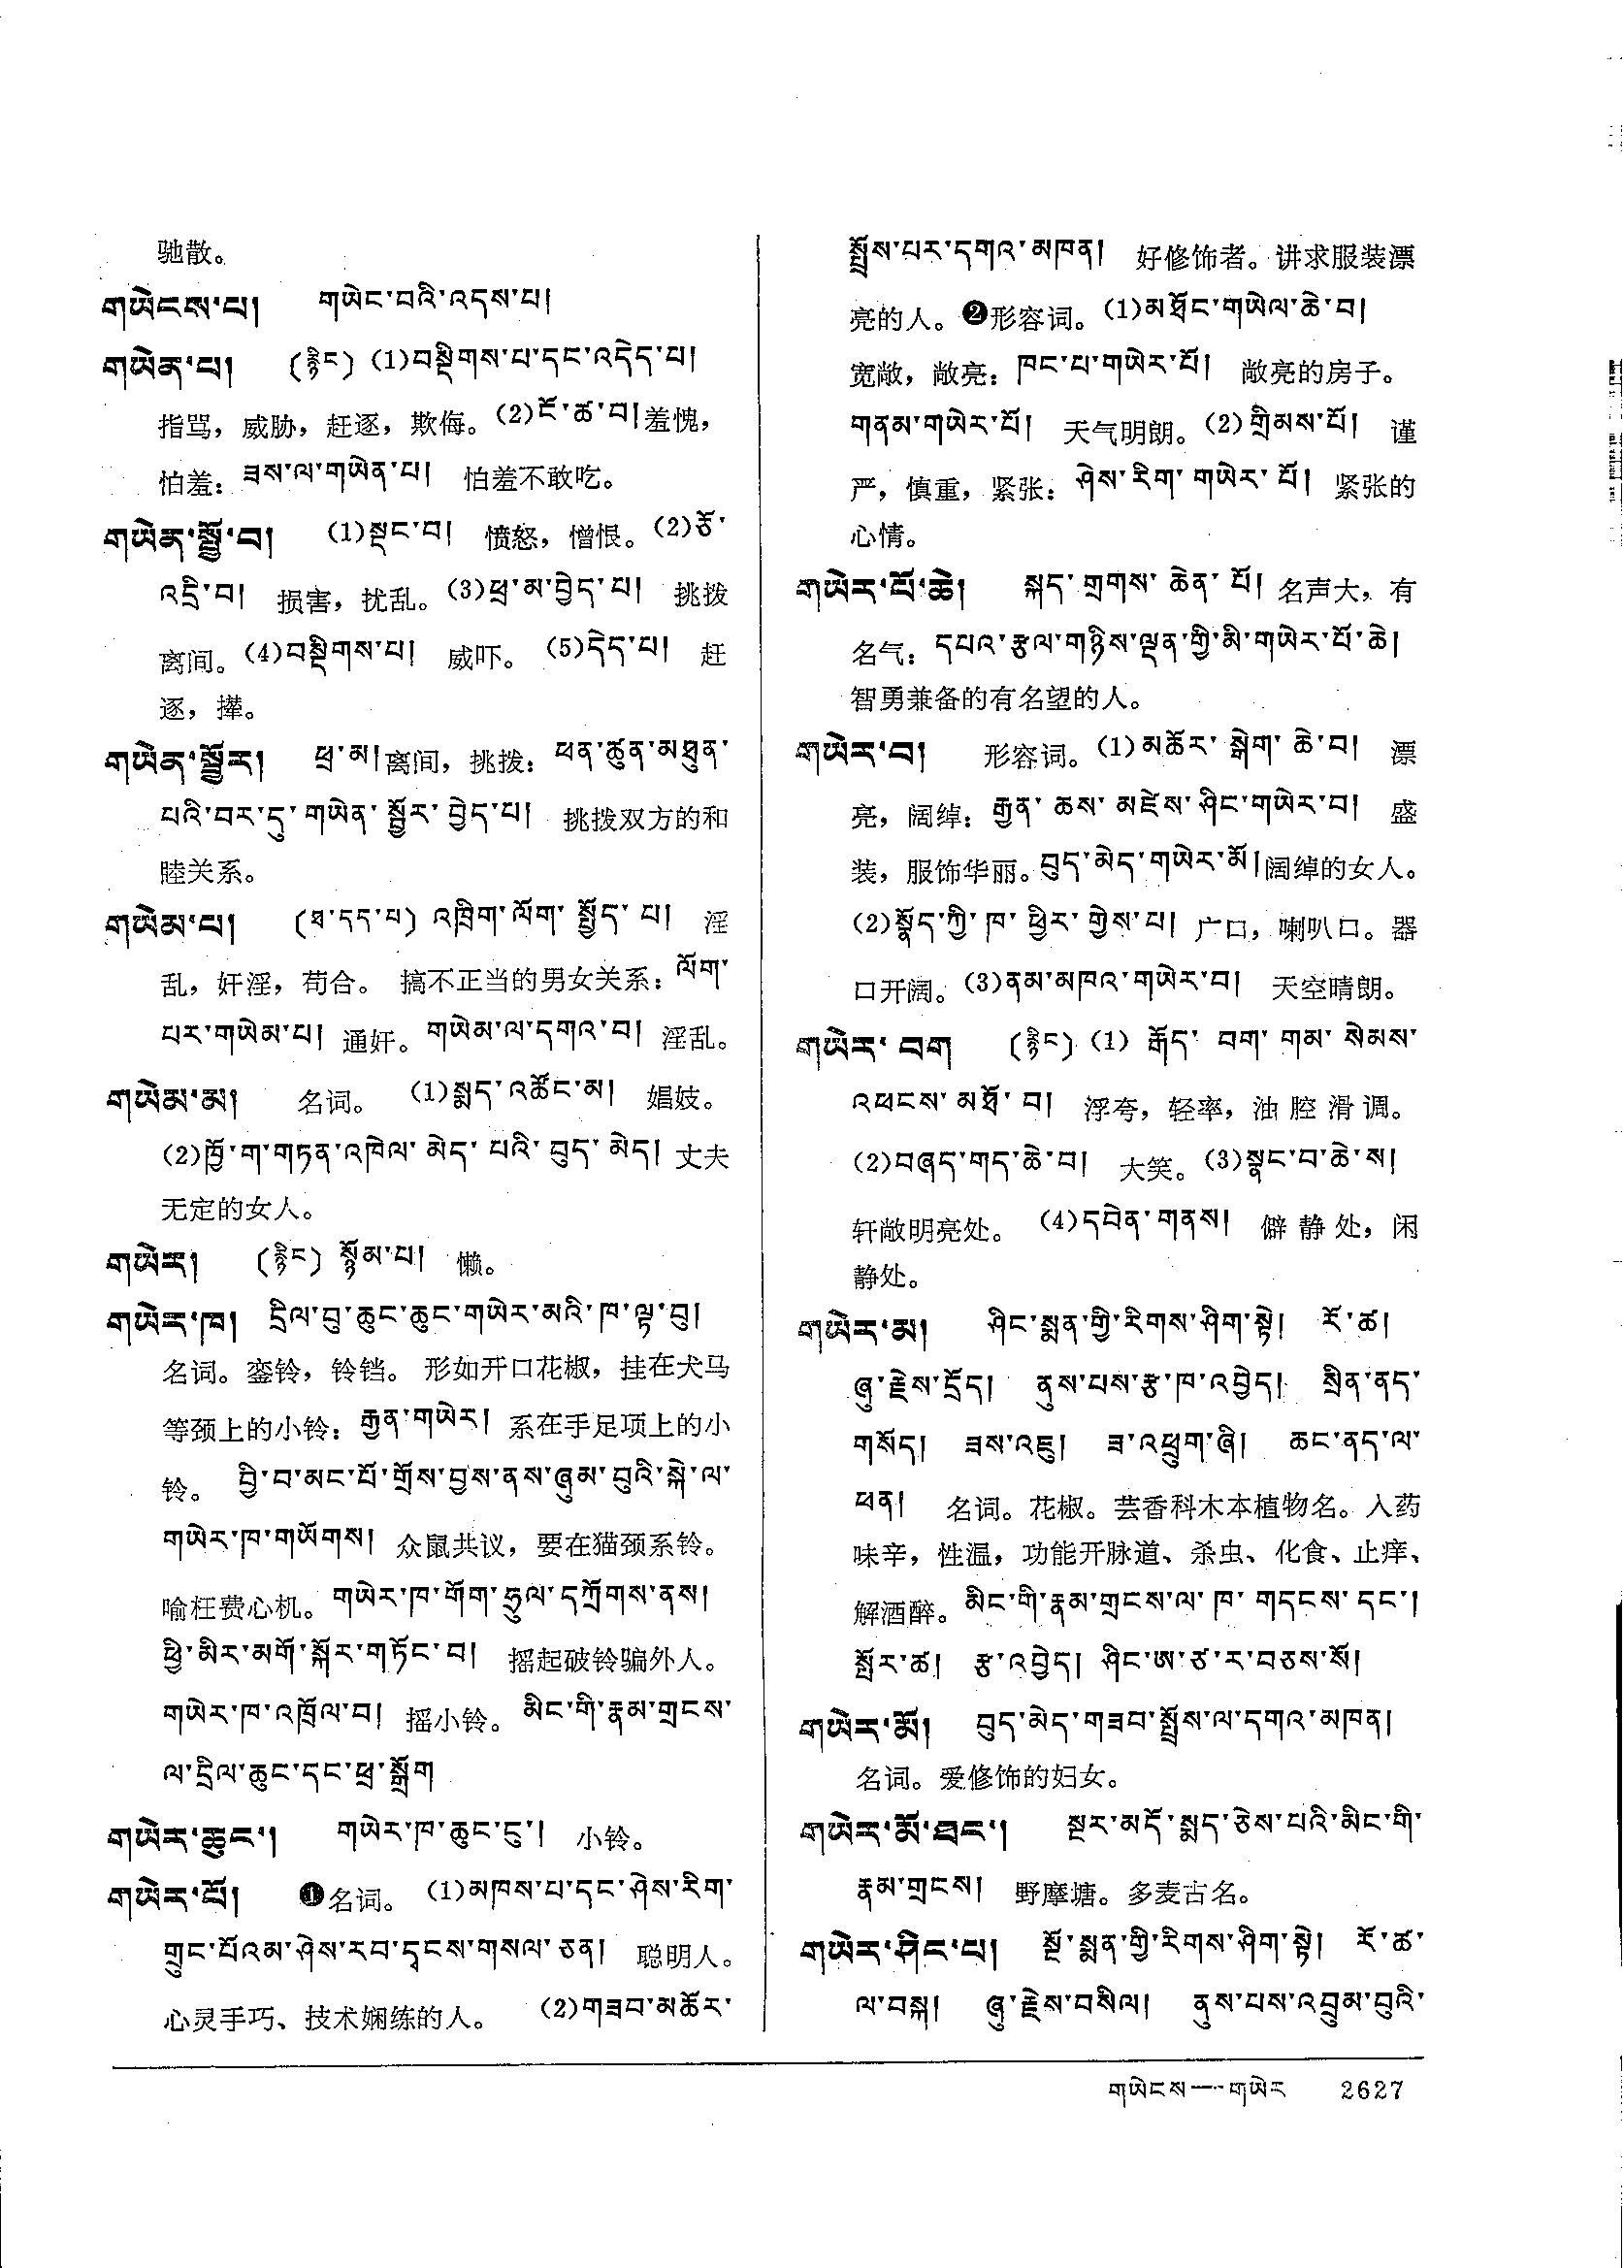 驰散。
གཡེངས་པ། གཡེང་བའི་འདས་པ།
གཡེན་པ། (རྙིང) (1)བསྡིགས་པ་དང་འདེད་པ།
指骂，威胁，赶逐，欺侮。(2)ངོ་ཚ་བ།羞愧，
怕羞：ཟས་ལ་གཡེན་པ། 怕羞不敢吃。
གཡེན་སྤྱོ་བ། (1)སྡང་བ། 愤怒，憎恨。(2)ཙོ་
འདྲི་བ། 损害，扰乱。(3)ཕྲ་མ་བྱེད་པ། 挑拨
离间。(4)བསྡིགས་པ། 威吓。(5)དེད་པ། 赶
逐，撵。
གཡེན་སྦྱོར། ཕྲ་མ།离间，挑拨：ཕན་ཚུན་མཐུན་
པའི་བར་དུ་གཡེན་སྦྱོར་བྱེད་པ། 挑拨双方的和
睦关系。
གཡེམ་པ། (ཐ་དད་པ) འཁྲིག་ལོག་སྤྱོད་པ། 淫
乱，奸淫，苟合。 搞不正当的男女关系：ལོག་
པར་གཡེམ་པ། 通奸。གཡེམ་ལ་དགའ་བ། 淫乱。
གཡེམ་མ། 名词。 (1)སྨད་འཚོང་མ། 娼妓。
(2)ཁྱོ་ག་གཏན་འཁེལ་མེད་པའི་བུད་མེད། 丈夫
无定的女人。
གཡེར། (རྙིང) སྙོམ་པ། 懒。
གཡེར་ཁ། དྲིལ་བུ་ཆུང་ཆུང་གཡེར་མའི་ཁ་ལྟ་བུ།
名词。銮铃，铃铛。 形如开口花椒，挂在犬马
等颈上的小铃：རྒྱན་གཡེར། 系在手足项上的小
铃。 བྱི་བ་མང་པོ་གྲོས་བྱས་ནས་ཞུམ་བུའི་སྐེ་ལ་
གཡེར་ཁ་གཡོགས། 众鼠共议，要在猫颈系铃。
喻枉费心机。གཡེར་ཁ་གོག་ཧྲུལ་དཀྲོགས་ནས།
ཕྱི་མིར་མགོ་སྐོར་གཏོང་བ། 摇起破铃骗外人。
གཡེར་ཁ་འཁྲོལ་བ། 摇小铃。མིང་གི་རྣམ་གྲངས་
ལ་དྲིལ་ཆུང་དང་ཕྲ་སྒྲོག
གཡེར་ཆུང་། གཡེར་ཁ་ཆུང་ངུ་། 小铃。
གཡེར་པོ། ❶名词。 (1)མཁས་པ་དང་ཤེས་རིག་
གྲུང་པོའམ་ཤེས་རབ་དྭངས་གསལ་ཅན། 聪明人。
心灵手巧、技术娴练的人。 (2)གཟབ་མཆོར་
སྤྲོས་པར་དགའ་མཁན། 好修饰者。讲求服装漂
亮的人。❷形容词。(1)མཐོང་གཡེལ་ཆེ་བ།
宽敞，敞亮：ཁང་པ་གཡེར་པོ། 敞亮的房子。
གནམ་གཡེར་པོ། 天气明朗。(2)གྲིམས་པོ། 谨
严，慎重，紧张：ཤེས་རིག་གཡེར་པོ། 紧张的
心情。
གཡེར་པོ་ཆེ། སྐད་གྲགས་ཆེན་པོ། 名声大，有
名气：དཔའ་རྩལ་གཉིས་ལྡན་གྱི་མི་གཡེར་པོ་ཆེ།
智勇兼备的有名望的人。
གཡེར་བ། 形容词。(1)མཆོར་སྒེག་ཆེ་བ། 漂
亮，阔绰：རྒྱན་ཆས་མཛེས་ཤིང་གཡེར་བ། 盛
装，服饰华丽。བུད་མེད་གཡེར་མོ།阔绰的女人。
(2)སྣོད་ཀྱི་ཁ་ཕྱིར་གྱེས་པ། 广口，喇叭口。器
口开阔。(3)ནམ་མཁའ་གཡེར་བ། 天空晴朗。
གཡེར་བག (རྙིང) (1) རྒོད་བག་གམ་སེམས་
འཕངས་མཐོ་བ། 浮夸，轻率，油腔滑调。
(2)བཞད་གད་ཆེ་བ། 大笑。(3)སྣང་བ་ཆེ་ས།
轩敞明亮处。 (4)དབེན་གནས། 僻静处，闲
静处。
གཡེར་མ། ཤིང་སྨན་གྱི་རིགས་ཤིག་སྟེ། རོ་ཚ།
ཞུ་རྗེས་དྲོད། ནུས་པས་རྩ་ཁ་འབྱེད། སྲིན་ནད་
གསོད། ཟས་འཇུ། ཟ་འཕྲུག་ཞི། ཆང་ནད་ལ་
ཕན། 名词。花椒。芸香科木本植物名。入药
味辛，性温，功能开脉道、杀虫、化食、止痒、
解酒醉。མིང་གི་རྣམ་གྲངས་ལ་ཁ་གདངས་དང་།
སྤོར་ཚ། རྩ་འབྱེད། ཤིང་ཨ་ཙ་ར་བཅས་སོ།
གཡེར་མོ། བུད་མེད་གཟབ་སྤྲོས་ལ་དགའ་མཁན།
名词。爱修饰的妇女。
གཡེར་མོ་ཐང་། སྔར་མདོ་སྨད་ཅེས་པའི་མིང་གི་
རྣམ་གྲངས། 野摩塘。多麦古名。
གཡེར་ཤིང་པ། སྔོ་སྨན་གྱི་རིགས་ཤིག་སྟེ། རོ་ཚ་
ལ་བསྐ། ཞུ་རྗེས་བསིལ། ནུས་པས་འབྲུམ་བུའི་
གཡེངས—གཡེར 2627